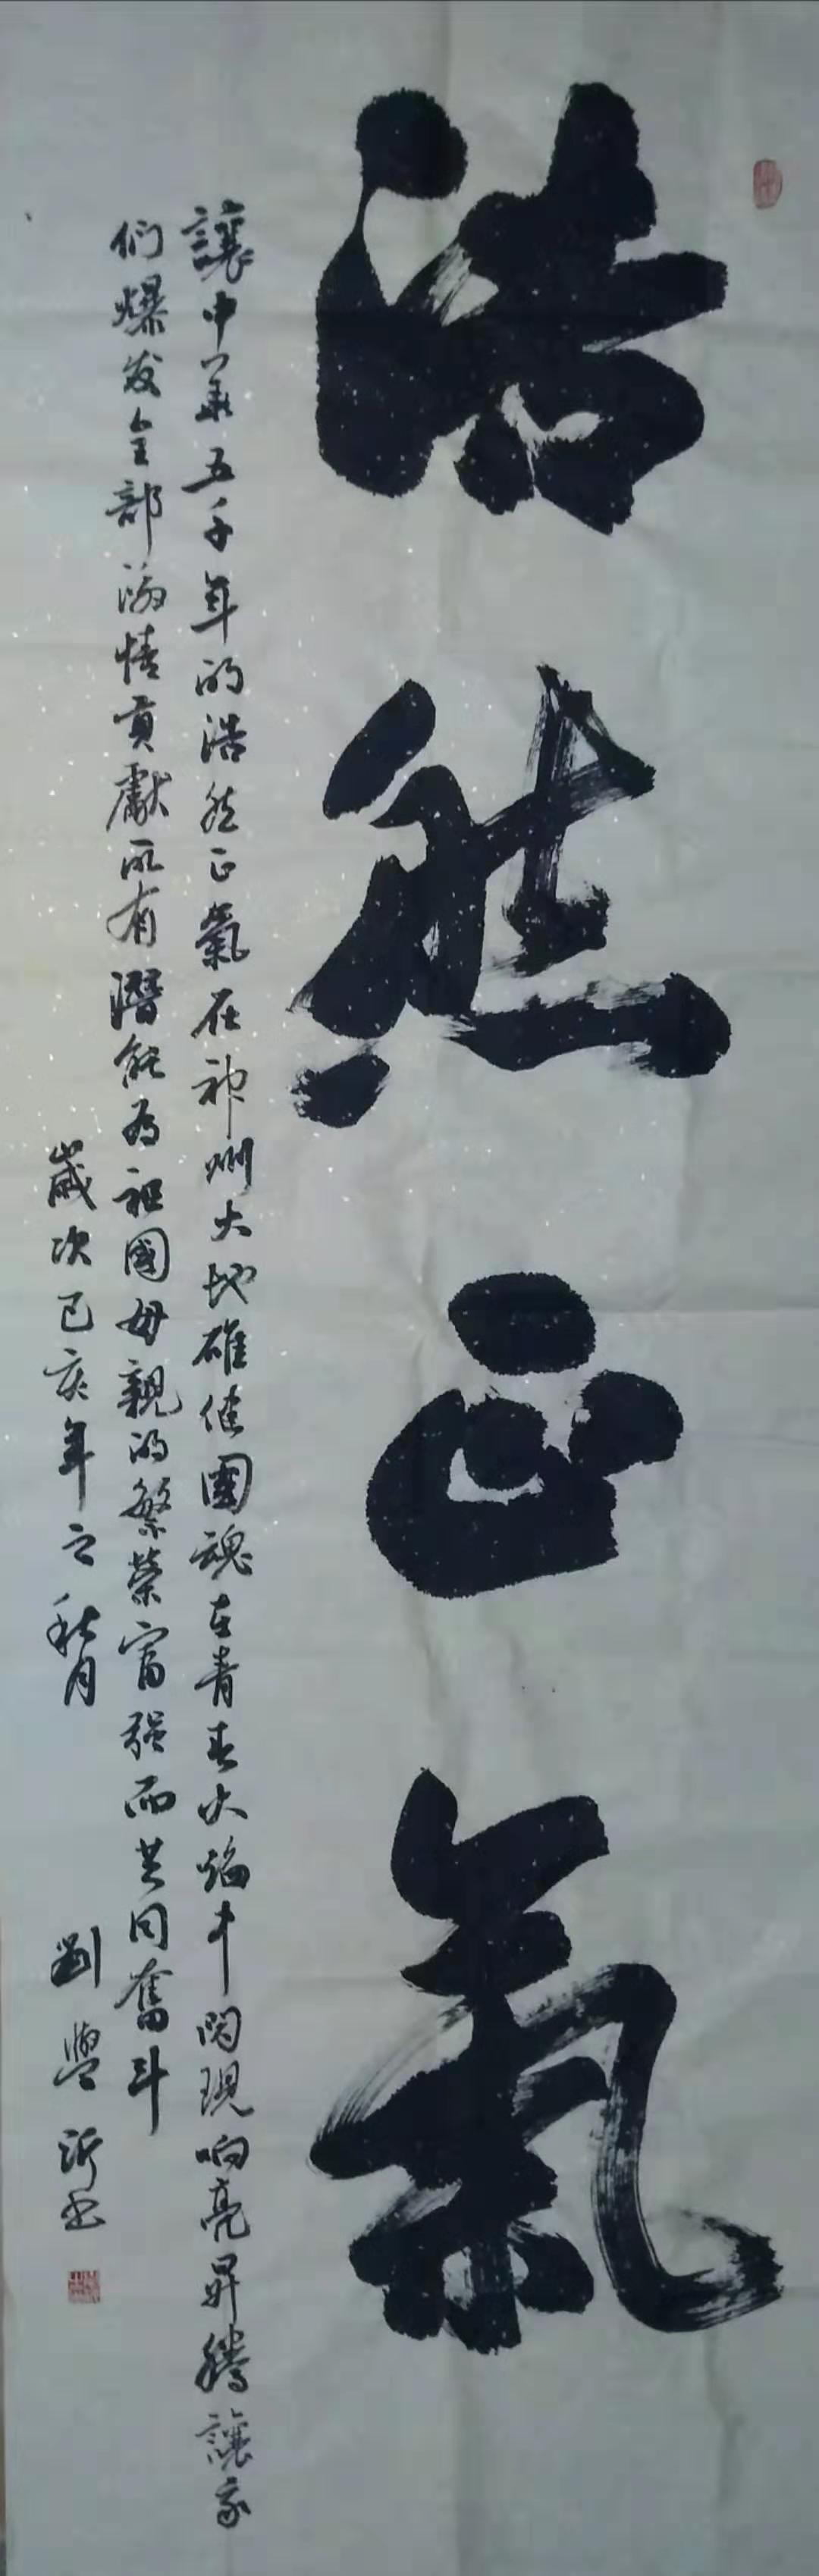 浩然正氣
讓中華五千年的浩然正氣在神州大地雄健國魂在青春火焰中閃現响亮昇騰讓我
们爆发全部激情貢獻所有潛能为祖國母親的繁荣富强而共同奮斗
嵗次己亥年之秋月
劉 沂书